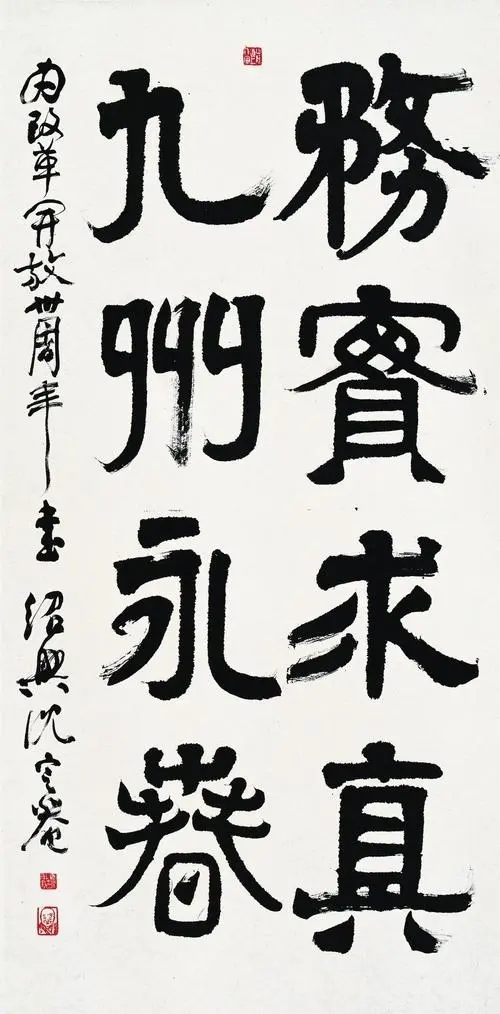 務實求真
九州永春
為改革開放卅周年書 紹興沈定菴